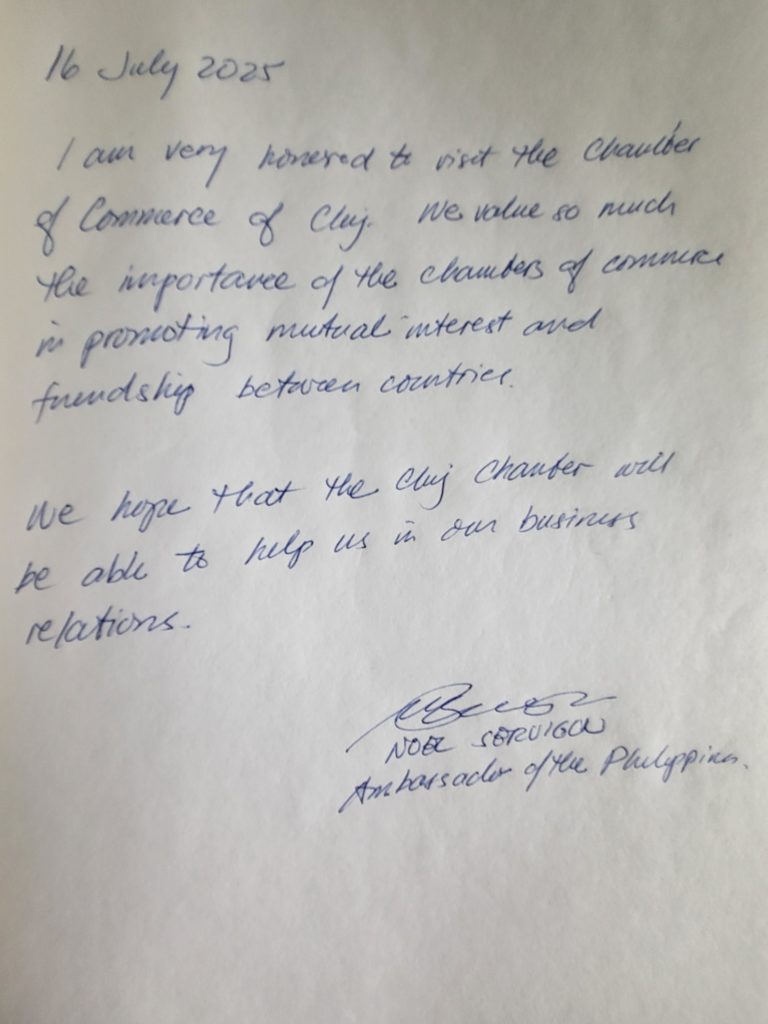 16 July 2025
I am very honored to visit the Chamber
of Commerce of Cluj. We value so much
the importance of the chambers of commerce
in promoting mutual interest and
friendship between countries.
We hope that the Cluj Chamber will
be able to help us in our business
relations.
NOEL SERVIGON
Ambassador of the Philippines.